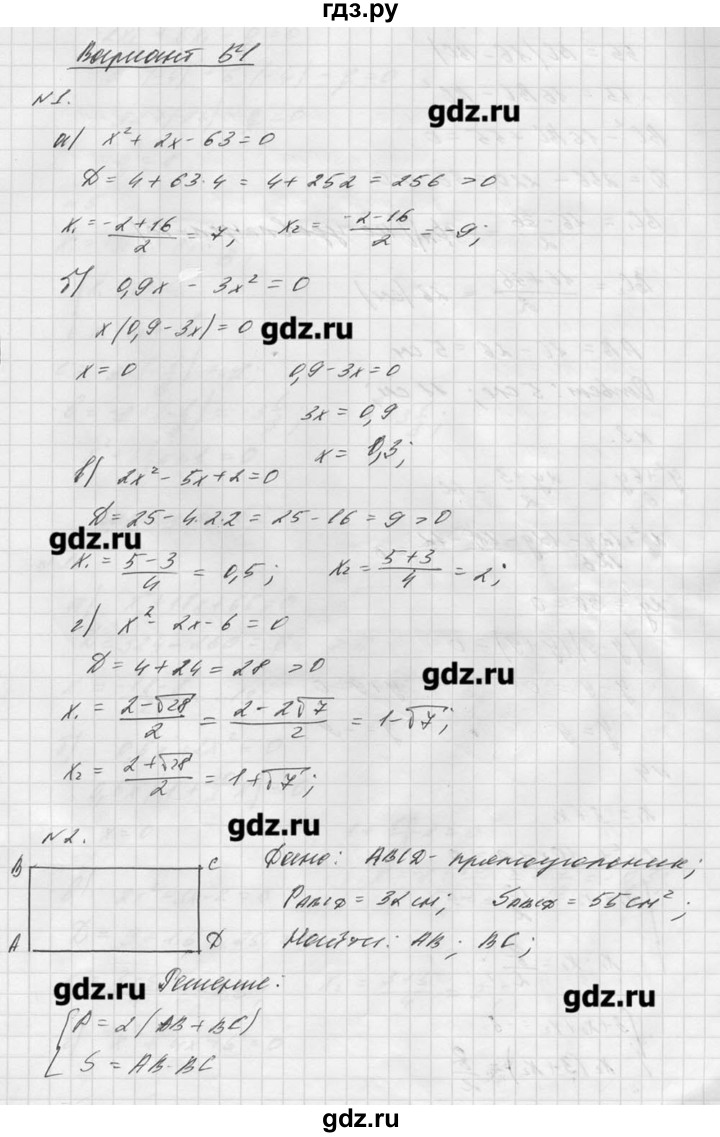 гдз.ру
Вариант Б1
№1.
gdz.ru
а) x² + 2x - 63 = 0
D = 4 + 63·4 = 4 + 252 = 256 > 0
x₁ = (-2+16)/2 = 7; x₂ = (-2-16)/2 = -9;
б) 0,9x - 3x² = 0
x(0,9-3x) = 0 gdz.ru
x = 0 0,9-3x = 0
3x = 0,9
x = 0,3;
в) 2x² - 5x + 2 = 0
D = 25 - 4·2·2 = 25 - 16 = 9 > 0
gdz.ru
x₁ = (5-3)/4 = 0,5; x₂ = (5+3)/4 = 2;
г) x² - 2x - 6 = 0
D = 4 + 24 = 28 > 0
gdz.ru
x₁ = (2-√28)/2 = (2-2√7)/2 = 1-√7;
x₂ = (2+√28)/2 = 1+√7;
gdz.ru
№2.
B C Дано: ABCD - прямоугольник;
P ABCD = 32 см; S ABCD = 55 см²;
A D Найти: AB; BC;
gdz.ru Решение: gdz.ru
P = 2(AB + BC)
S = AB·BC
gdz.ru